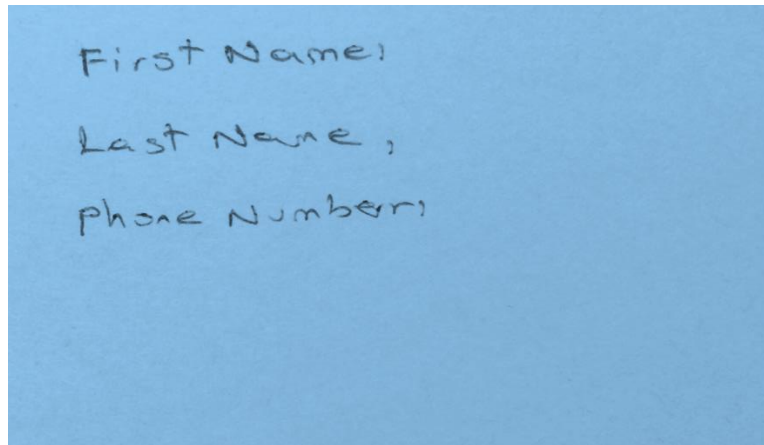 First Name:
Last Name,
phone Number: